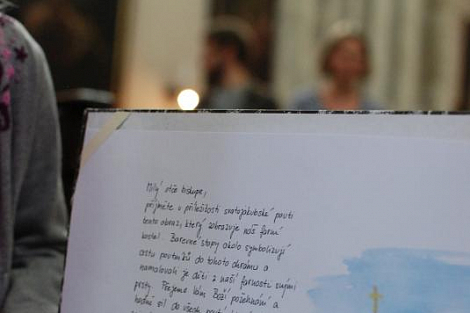 Milý otče biskupe,
přijměte u příležitosti svatojakubské pouti
tento obraz, který zobrazuje náš farní
kostel. Barevné stopy okolo symbolizují
cestu poutníků do tohoto chrámu a
namalovali je děti z naší farnosti svými
prsty. Přejeme Vám Boží požehnání a
hodně sil do všech